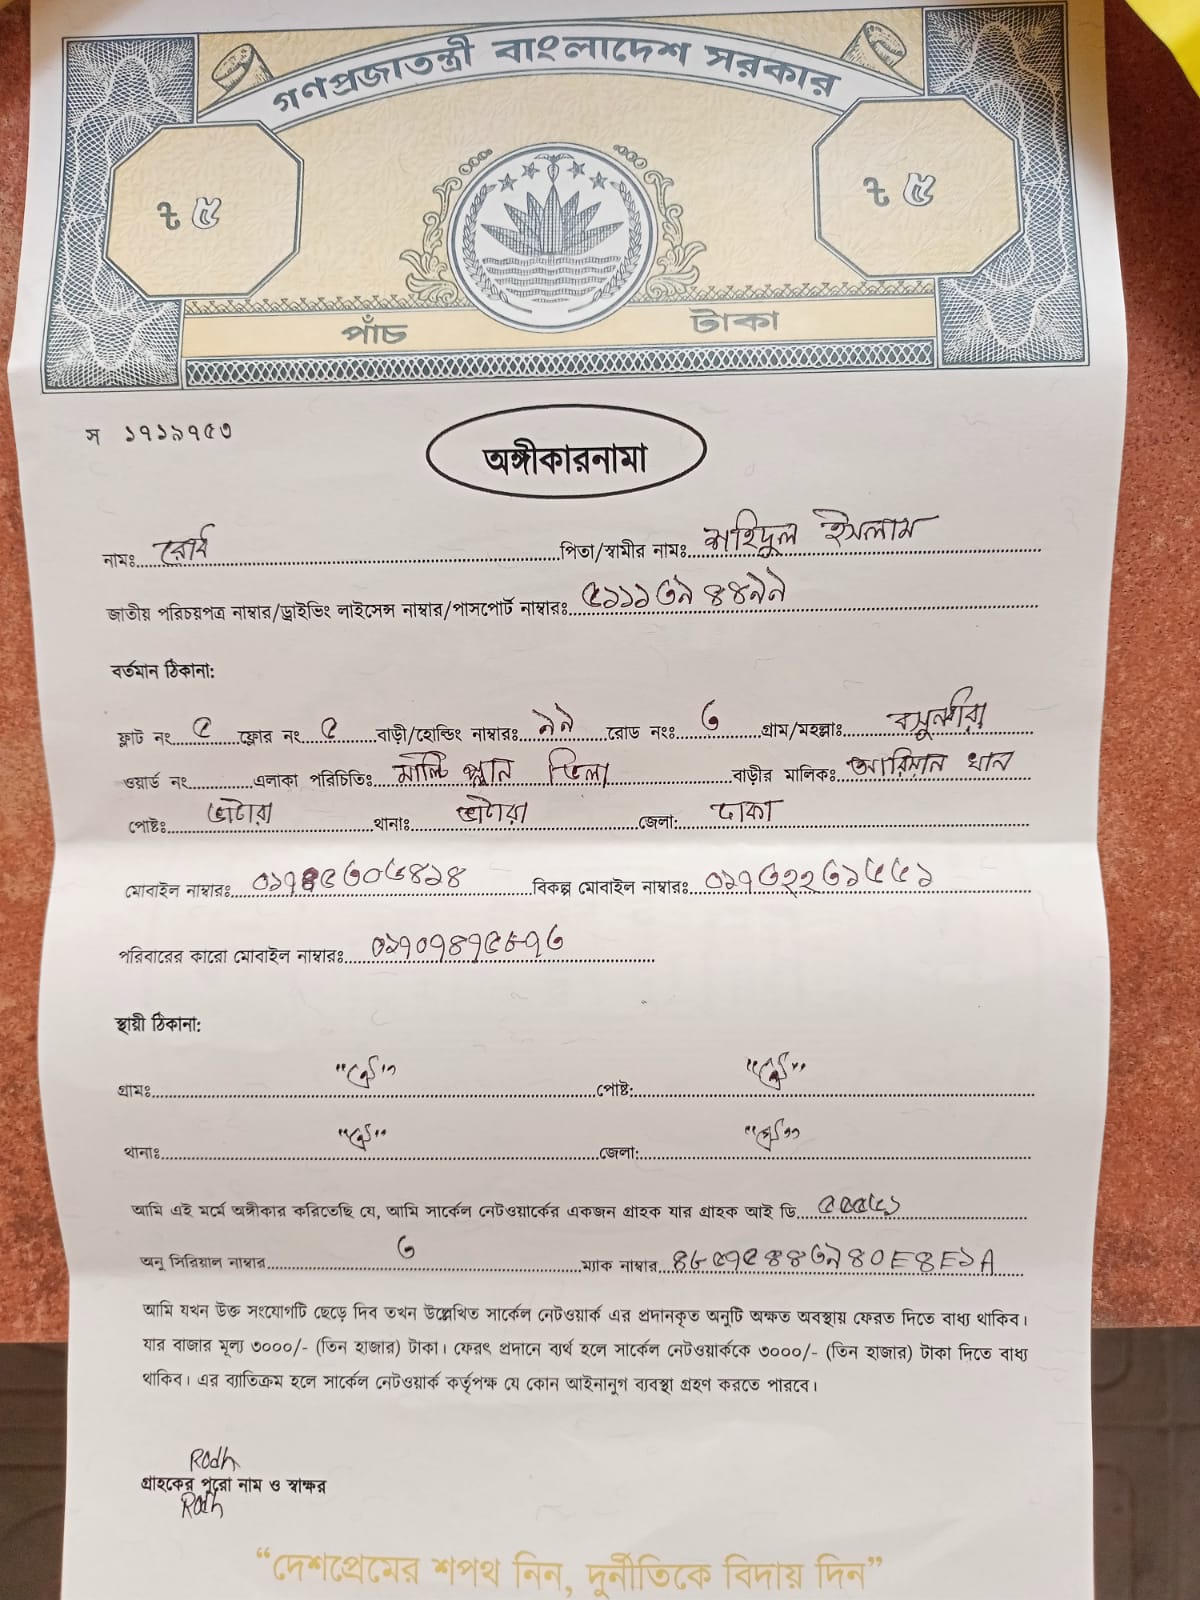 গণপ্রজাতন্ত্রী বাংলাদেশ সরকার
৳ ৫
৳ ৫
পাঁচ টাকা
স ১৭১৯৭৫৩
অঙ্গীকারনামা
নামঃ পিতা/স্বামীর নামঃ শহিদুল ইসলাম
জাতীয় পরিচয়পত্র নাম্বার/ড্রাইভিং লাইসেন্স নাম্বার/পাসপোর্ট নাম্বারঃ ৫১১১৩৯৪৪৯৯
বর্তমান ঠিকানা:
ফ্লাট নং ৫ ফ্লোর নং ৫ বাড়ী/হোল্ডিং নাম্বারঃ ৯৯ রোড নংঃ ৩ গ্রাম/মহল্লাঃ বসুন্ধরা
ওয়ার্ড নং এলাকা পরিচিতিঃ মাল্টি প্লান ভিলা বাড়ীর মালিকঃ আরিমান খান
পোষ্টঃ ভাটারা থানাঃ ভাটারা জেলা: ঢাকা
মোবাইল নাম্বারঃ বিকল্প মোবাইল নাম্বারঃ ০১৭৩২২৩১৫৫১
পরিবারের কারো মোবাইল নাম্বারঃ
স্থায়ী ঠিকানা:
গ্রামঃ পোষ্ট:
থানাঃ জেলা:
আমি এই মর্মে অঙ্গীকার করিতেছি যে, আমি সার্কেল নেটওয়ার্কের একজন গ্রাহক যার গ্রাহক আই ডি
অনু সিরিয়াল নাম্বার ৩ ম্যাক নাম্বার
আমি যখন উক্ত সংযোগটি ছেড়ে দিব তখন উল্লেখিত সার্কেল নেটওয়ার্ক এর প্রদানকৃত অনুটি অক্ষত অবস্থায় ফেরত দিতে বাধ্য থাকিব।
যার বাজার মূল্য ৩০০০/- (তিন হাজার) টাকা। ফেরৎ প্রদানে ব্যর্থ হলে সার্কেল নেটওয়ার্ককে ৩০০০/- (তিন হাজার) টাকা দিতে বাধ্য
থাকিব। এর ব্যাতিক্রম হলে সার্কেল নেটওয়ার্ক কর্তৃপক্ষ যে কোন আইনানুগ ব্যবস্থা গ্রহণ করতে পারবে।
Rodh
গ্রাহকের পুরো নাম ও স্বাক্ষর
Rodh
“দেশপ্রেমের শপথ নিন, দুর্নীতিকে বিদায় দিন”